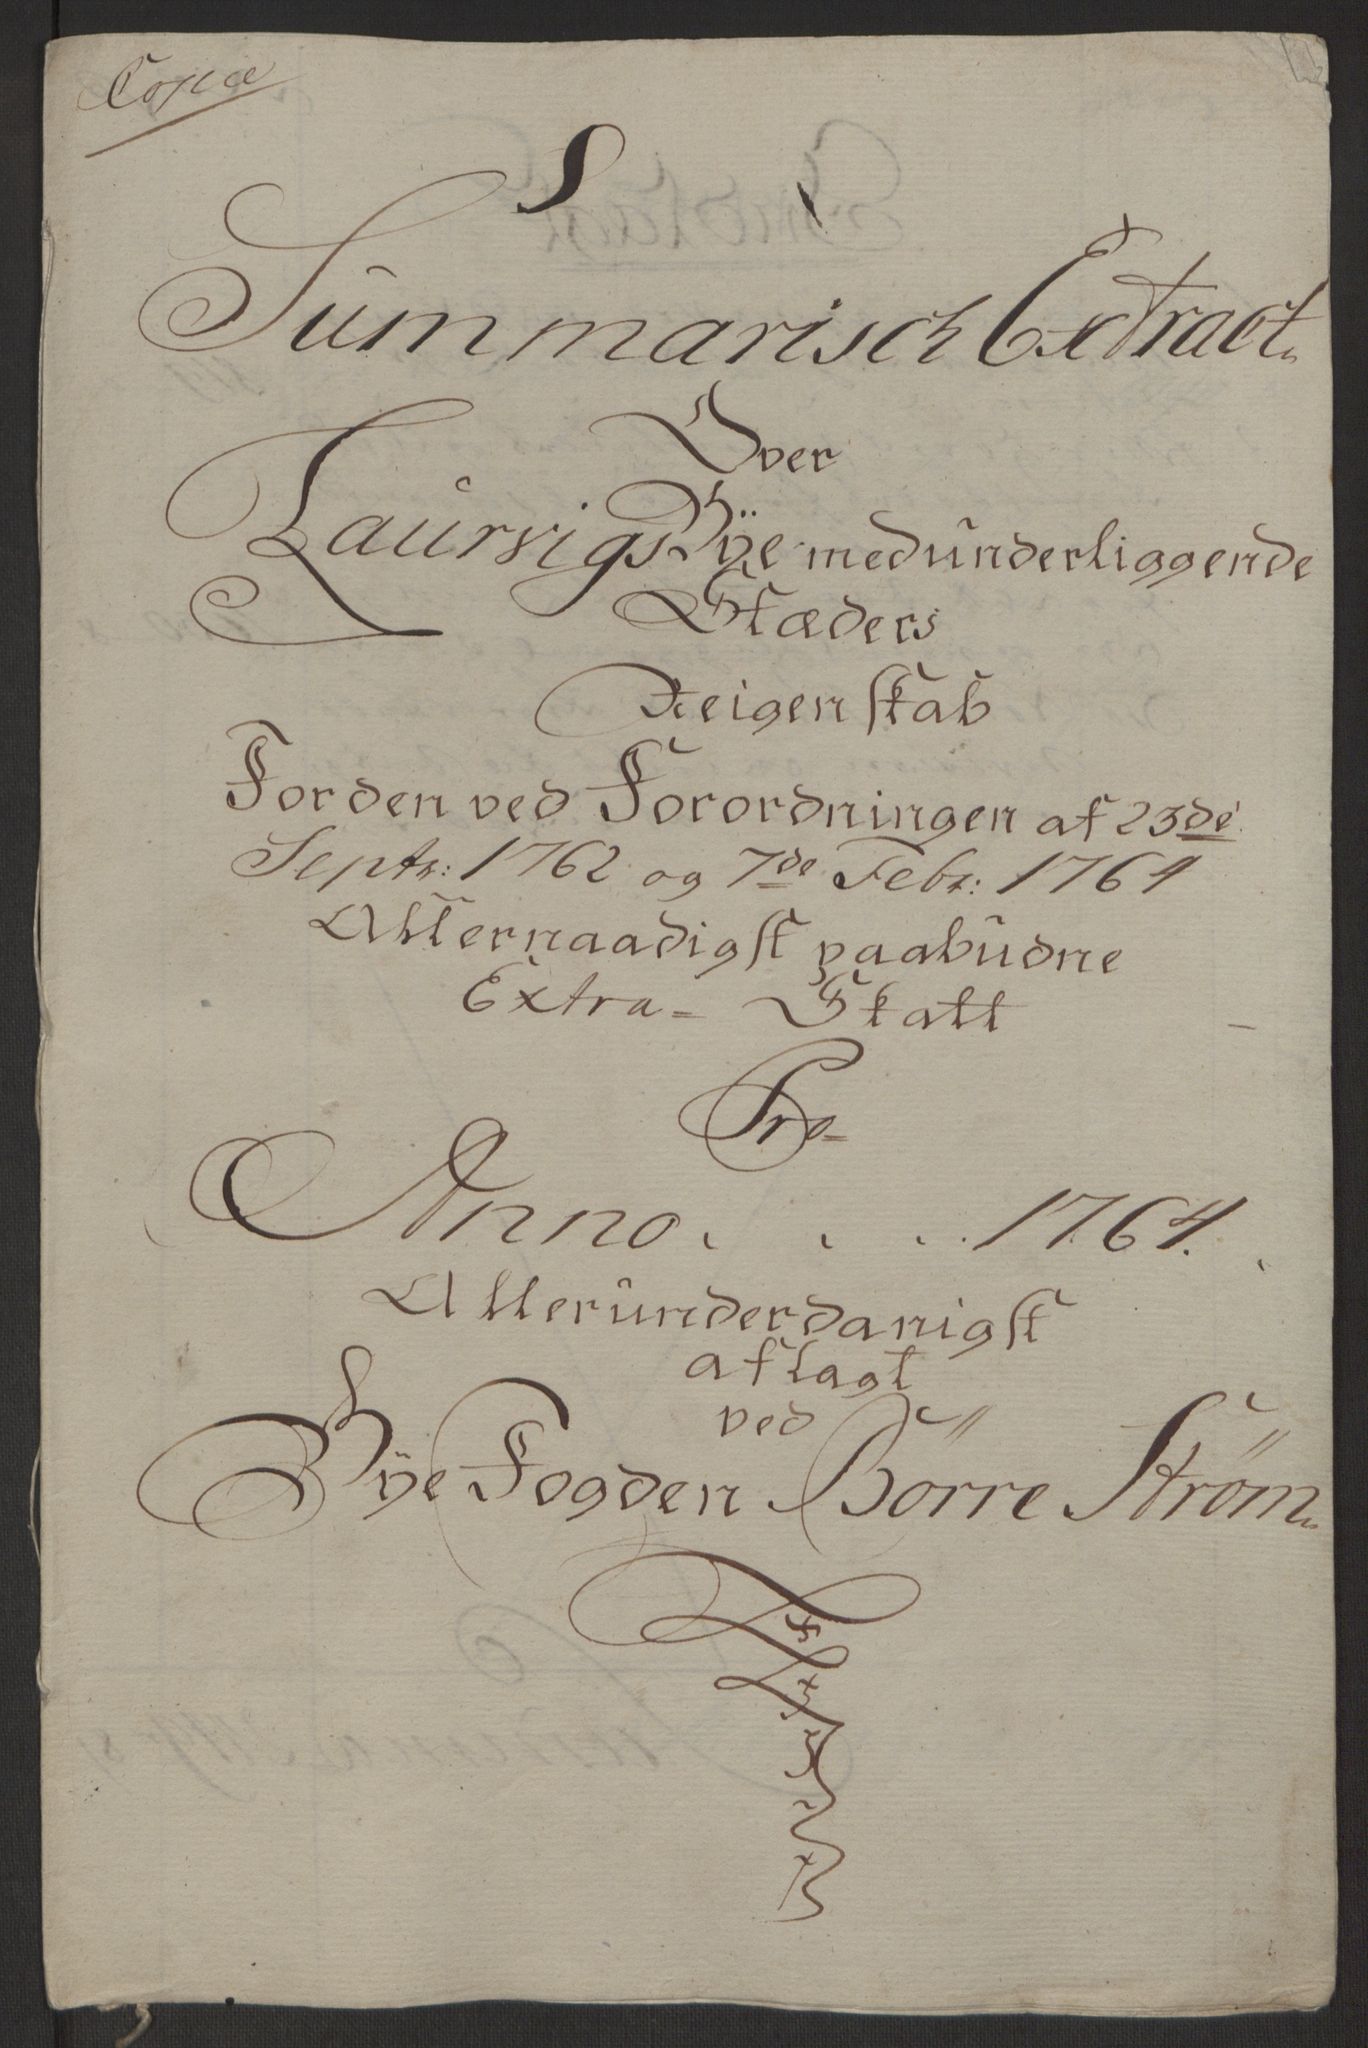 Copia
Summarisch Extract
Over
Laurvigs Bÿe med underliggende
Stæders
Reigenskab
For den ved Forordningen af 23de
Septr: 1762 og 7de Febr: 1764
Allernaadigst paabudne
Extra= Skatt
Pro=
Anno . . . 1764.
Allerunderdanigst
aflagt
ved
Bÿe Fogden Börre Ström